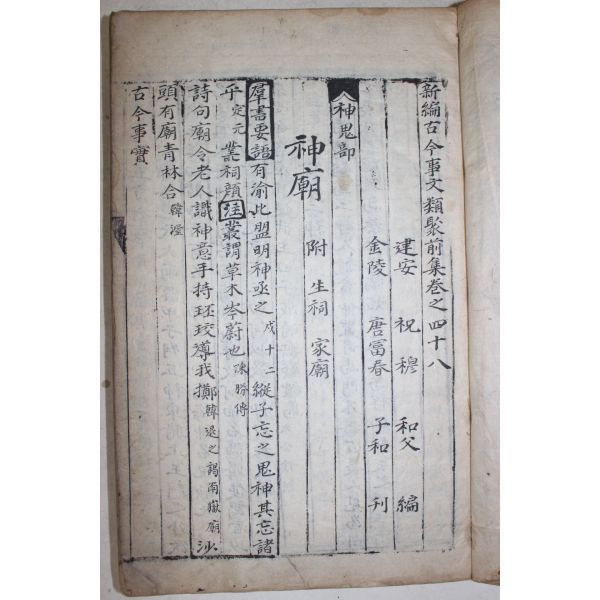 新編古今事文類聚前集卷之四十八
建安 祝穆 和父 編
金陵 唐富春 子和 刊
神鬼部
神廟 附 生祠 家廟
羣書要語有渝此盟明神丞之戍十二縱子忘之鬼神其忘諸
乎定元叢祠顔注叢謂草木岑蔚也陳勝傳
詩句廟令老人識神意手持珓導我擲韓退之謁南嶽廟沙
頭有廟青林合韓渥
古今事實